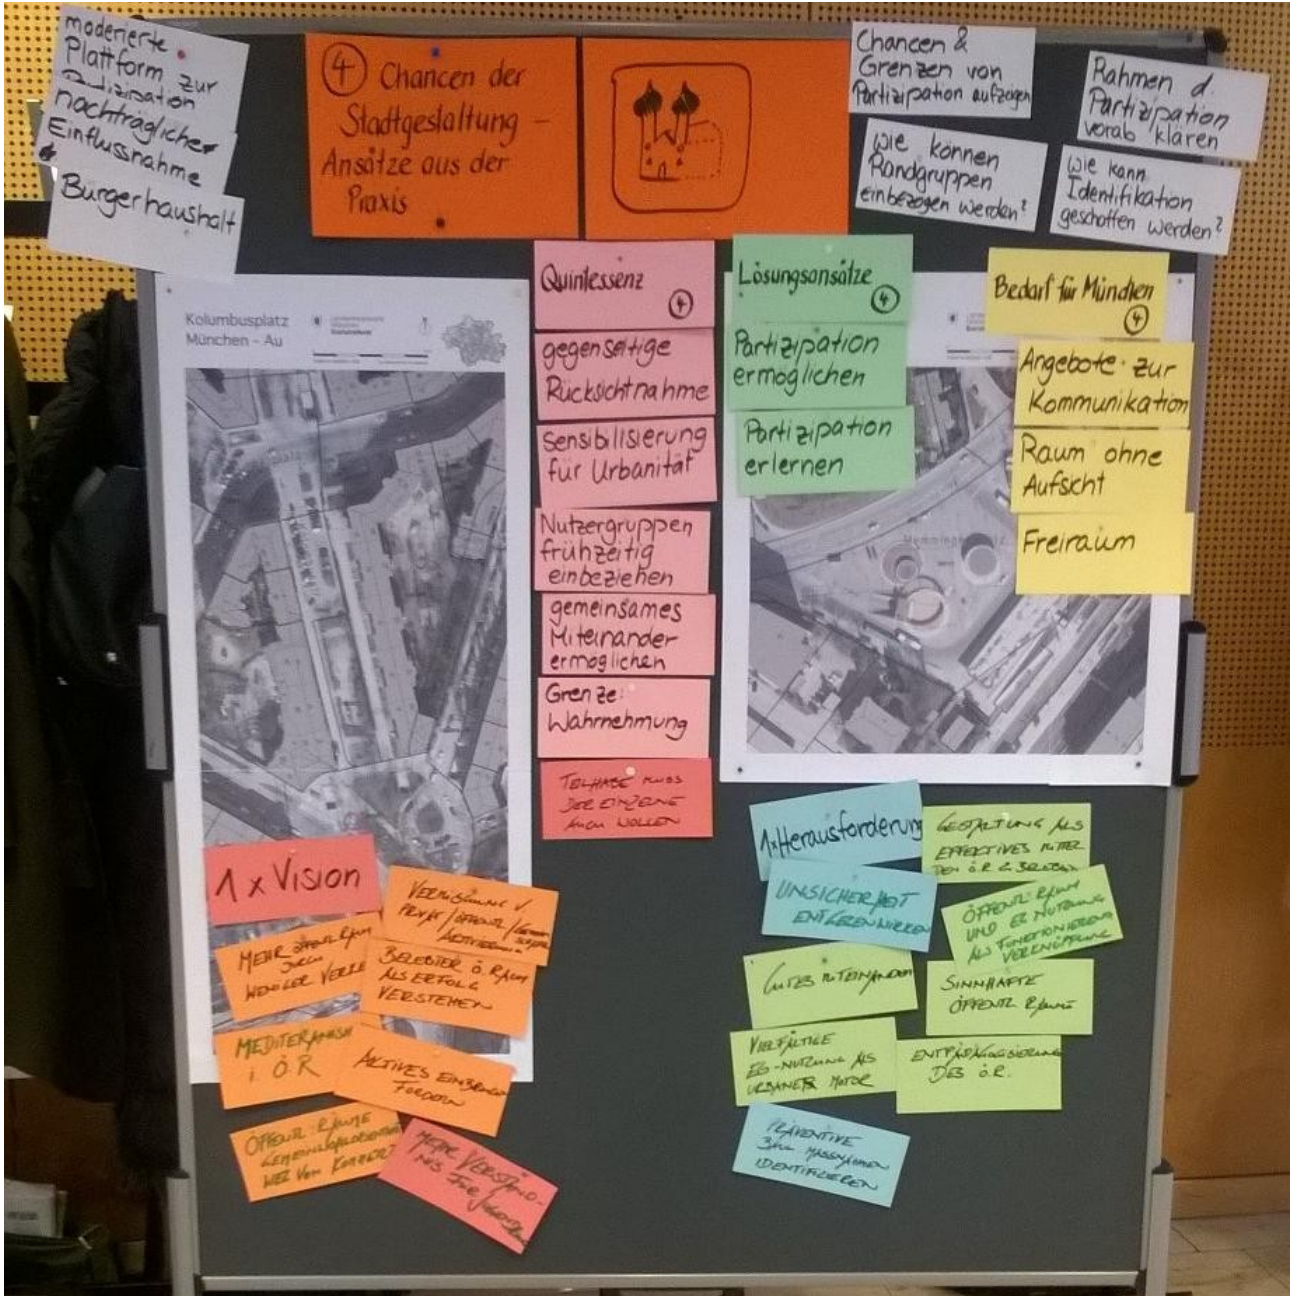 moderierte
Plattform zur
Partizipation
nachträgliche
Einflussnahme
Bürgerhaushalt
④ Chancen der
Stadtgestaltung -
Ansätze aus der
Praxis
Chancen &
Grenzen von
Partizipation aufzeigen
Rahmen d.
Partizipation
vorab klären
wie können
Randgruppen
einbezogen werden?
wie kann
Identifikation
geschaffen werden?
Kolumbusplatz
München - Au
Quintessenz
④
gegenseitige
Rücksichtnahme
Sensibilisierung
für Urbanität
Nutzergruppen
frühzeitig
einbeziehen
gemeinsames
Miteinander
ermöglichen
Grenze:
Wahrnehmung
TEILHABE MUSS
DER EINZELNE
AUCH WOLLEN
Lösungsansätze
④
Partizipation
ermöglichen
Partizipation
erlernen
Bedarf für München
④
Angebote zur
Kommunikation
Raum ohne
Aufsicht
Freiraum
1 x Vision
VERMISCHUNG V.
PRIVAT / ÖFFENTL. /
MEHR ÖFFENTL. RAUM
DURCH
WENIGER
BELEBTER Ö. RAUM
ALS ERFOLG
VERSTEHEN
MEDITERANISH
i. Ö.R
AKTIVES EINBRINGEN
FÖRDERN
ÖFFENTL. RÄUME
WEG VOM
MEHR VERSTÄND-
NIS FÜR
1xHerausforderung
UNSICHERHEIT
ENTGEGENWIRKEN
GESTALTUNG ALS
EFFEKTIVES MITTEL
DEN Ö.R. Z. BELEBEN
ÖFFENTL. RAUM
UND EG NUTZUNG
ALS FUNKTIONIERENDE
VERKNÜPFUNG
GUTES MITEINANDER
SINNHAFTE
ÖFFENTL. RÄUME
VIELFÄLTIGE
EG-NUTZUNG ALS
URBANER MOTOR
ENTPÄDAGOGISIERUNG
DES Ö.R.
PRÄVENTIVE
MASSNAHMEN
IDENTIFIZIEREN